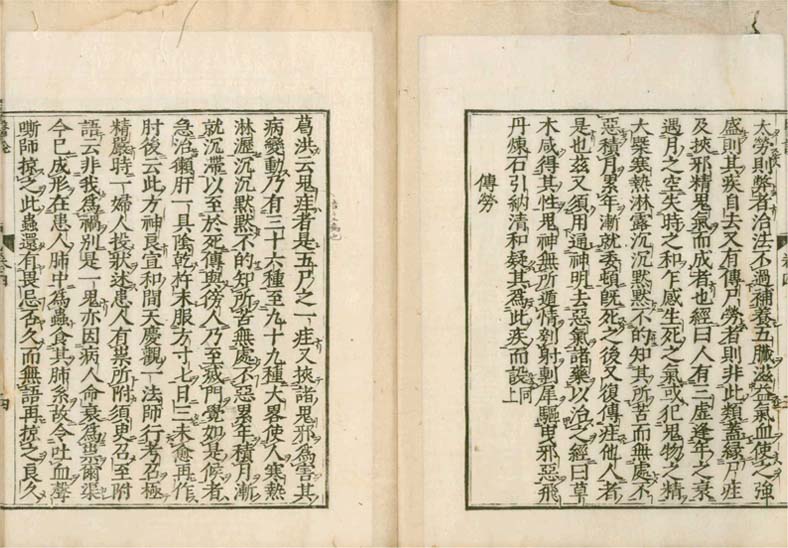 太勞則弊者治法不過補養五臓滋益氣血使之強
盛則其疾自去又有傳尸勞者則非此類蓋縁尸疰
及挾邪精鬼氣而成者也經曰人有三虛逢年之衰
遇月之空失時之和乍感生死之氣或犯鬼物之精
大槩寒熱淋露沉沉黙黙不的知其所苦而無處不
惡積月累年漸就委頓旣死之後又復傳疰他人者
是也茲又須用通神明去惡氣諸藥以治之經曰草
木咸得其性鬼神無所遁情刳射剸犀驅曳邪惡飛
丹煉石引納清和疑其爲此疾而設 同上
傳勞
葛洪云鬼疰者是五尸之一疰又挾諸鬼邪爲害其
病變動乃有三十六種至九十九種大畧使人寒熱
淋瀝沉沉黙黙不的知所苦無處不惡累年積月漸
就沉滯以至於死傳與徬人乃至滅門覺如是候者
急治獺肝一具陰乾杵末服方寸七日三未愈再作
肘後云此方神良宣和間天慶觀一法師行考召極
精嚴時一婦人投狀述患人有祟所附須臾召至附
語云非我爲禍別是一鬼亦因病人命衰爲祟爾渠
今已成形在患人肺中爲蟲食其肺系故令吐血聲
嘶師掠之此蟲還有畏忌否久而無語再掠之良久